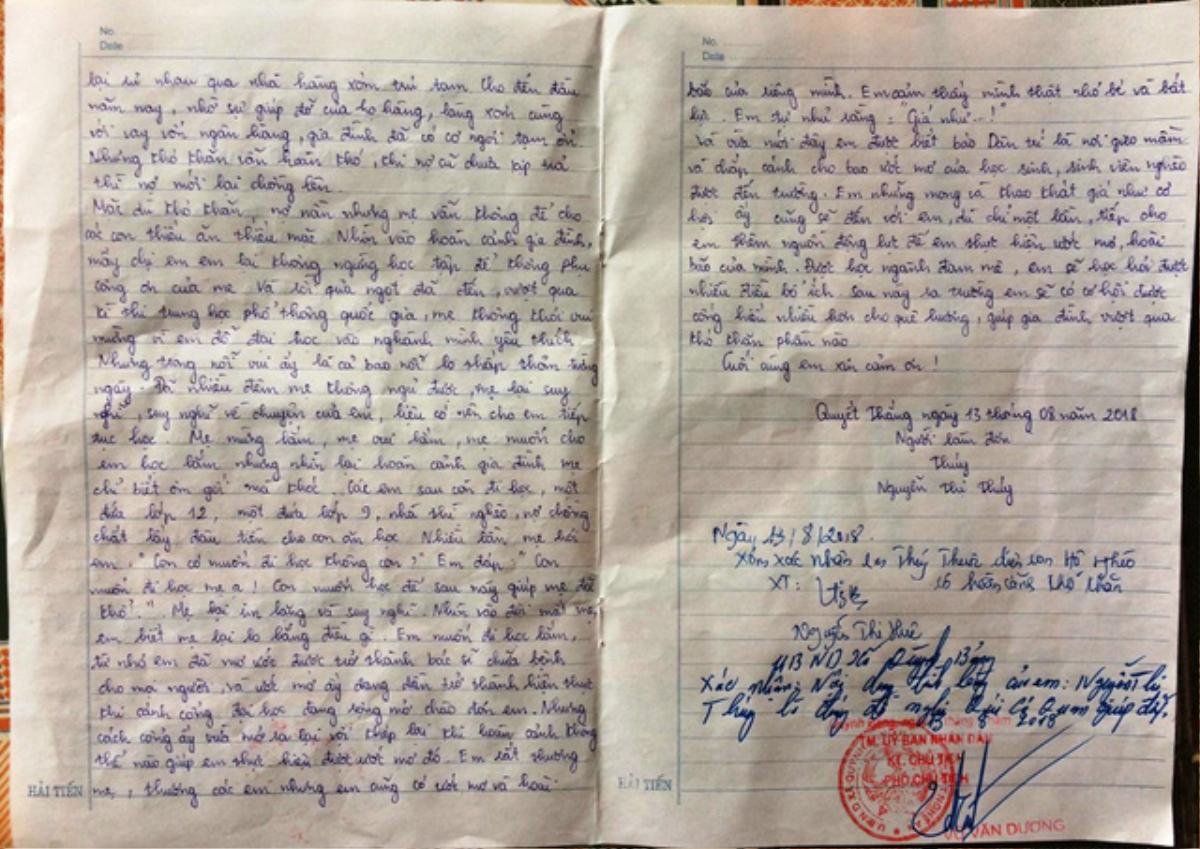 No.
Date
lại tử nhau qua nhà hàng xóm trú tạm. Cho đến đầu
năm nay, nhờ sự giúp đỡ của họ hàng, làng xóm cùng
với vay vốn ngân hàng, gia đình đã có cơ ngơi tạm ổn.
Nhưng khó khăn vẫn hoàn khó, khi nợ cũ chưa kịp trả
thì nợ mới lại chồng lên.
Mặc dù khó khăn, nợ nần nhưng mẹ vẫn không để cho
các con thiếu ăn thiếu mặc. Nhìn vào hoàn cảnh gia đình,
mấy chị em em lại không ngừng học tập để không phụ
công ơn của mẹ. Và rồi quả ngọt đã đến, vượt qua
kì thi trung học phổ thông quốc gia, mẹ không khỏi vui
mừng vì em đỗ đại học vào nghành mình yêu thích.
Nhưng trong nỗi vui ấy là cả bao nỗi lo thấp thỏm từng
ngày. Đã nhiều đêm mẹ không ngủ được, mẹ lại suy
nghĩ, suy nghĩ về chuyện của em, liệu có nên cho em tiếp
tục học. Mẹ mừng lắm, mẹ vui lắm, mẹ muốn cho
em học lắm nhưng nhìn lại hoàn cảnh gia đình mẹ
chỉ biết ôm gối mà khóc. Các em sau còn đi học, một
đứa lớp 12, một đứa lớp 9, nhà thì nghèo, nợ chồng
chất lấy đâu tiền cho con ăn học. Nhiều lần mẹ hỏi
em: "Con có muốn đi học không con?" Em đáp: "Con
muốn đi học mẹ ạ! Con muốn học để sau này giúp mẹ đỡ
khổ.". Mẹ lại im lặng và suy nghĩ. Nhìn vào đôi mắt mẹ,
em biết mẹ lại lo lắng điều gì. Em muốn đi học lắm,
từ nhỏ em đã mơ ước được trở thành bác sĩ chữa bệnh
cho mọi người, và ước mơ ấy đang dần trở thành hiện thực
khi cánh cổng đại học đang rộng mở chào đón em. Nhưng
cách cổng ấy vừa mở ra lại vội khép lại khi hoàn cảnh không
thể nào giúp em thực hiện được ước mơ đó. Em rất thương
mẹ, thương các em nhưng em cũng có ước mơ và hoài
HẢI TIẾN
No.
Date
bão của riêng mình. Em cảm thấy mình thật nhỏ bé và bất
lực. Em tự nhủ rằng: "Giá như...!"
Và vừa mới đây em được biết báo Dân trí là nơi gieo mầm
và chắp cánh cho bao ước mơ của học sinh, sinh viên nghèo
được đến trường. Em những mong và khao khát giá như cơ
hội ấy cũng sẽ đến với em, dù chỉ một lần, tiếp cho
em thêm nguồn động lực để em thực hiện ước mơ, hoài
bão của mình. Được học ngành đam mê, em sẽ học hỏi được
nhiều điều bổ ích sau này ra trường em sẽ có cơ hội được
cống hiến nhiều hơn cho quê hương, giúp gia đình vượt qua
khó khăn phần nào.
Cuối cùng em xin cảm ơn!
Quyết Thắng ngày 13 tháng 08 năm 2018
Người làm đơn
Thúy
Nguyễn Thị Thúy
Ngày 13/8/2018.
Xóm xác nhận em Thúy Thuộc diện con Hộ Nghèo
XT: có hoàn cảnh khó khăn
Nguyễn Thị Huê
UBND Xã
Xác nhận: Nội dung em: Nguyễn Thị
Thúy là đúng đề nghị quan giúp đỡ.
13 8 2018
TM. ỦY BAN NHÂN DÂN
KT. CHỦ TỊCH
PHÓ CHỦ TỊCH
VŨ VĂN DƯƠNG
HẢI TIẾN